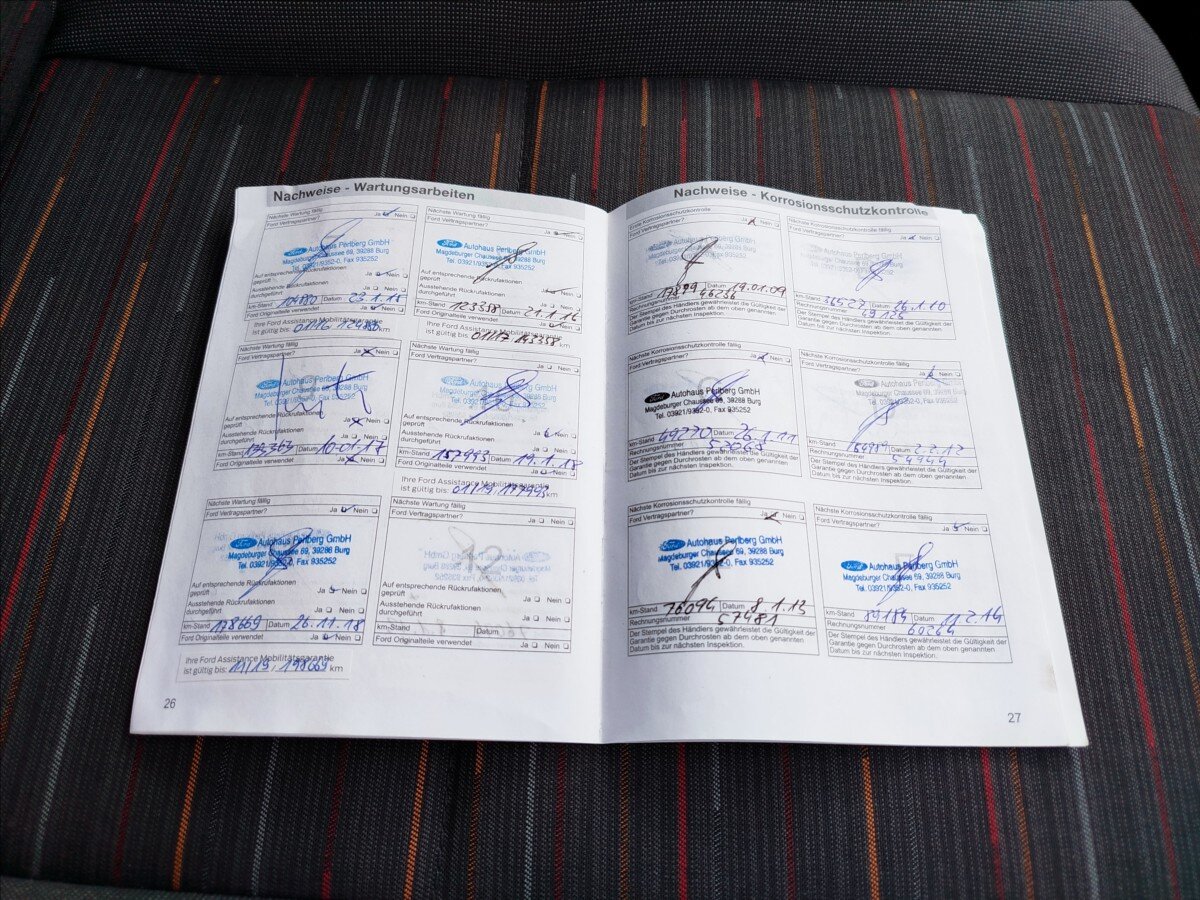 Nachweise - Wartungsarbeiten
Nächste Wartung fällig
Ford Vertragspartner? Ja Nein
Ford Autohaus Perlberg GmbH
Magdeburger Chaussee 69, 39288 Burg
Tel. 03921/9352-0, Fax 935252
Auf entsprechende Rückrufaktionen
geprüft Ja Nein
Ausstehende Rückrufaktionen
durchgeführt Ja Nein
km-Stand Datum 23.1.15
Ford Originalteile verwendet Ja Nein
Ihre Ford Assistance Mobilitätsgarantie
ist gültig bis: 01/16 km
Nächste Wartung fällig
Ford Vertragspartner? Ja Nein
Ford Autohaus Perlberg GmbH
Magdeburger Chaussee 69, 39288 Burg
Tel. 03921/9352-0, Fax 935252
Auf entsprechende Rückrufaktionen
geprüft
Ausstehende Rückrufaktionen
durchgeführt
km-Stand 123358 Datum 21.1.16
Ford Originalteile verwendet Ja Nein
Ihre Ford Assistance Mobilitätsgarantie
ist gültig bis: 01/17 143358 km
Nächste Wartung fällig
Ford Vertragspartner? Ja Nein
Ford Autohaus Perlberg GmbH
Magdeburger Chaussee 69, 39288 Burg
Tel. 03921/9352-0, Fax 935252
Auf entsprechende Rückrufaktionen
geprüft Ja Nein
Ausstehende Rückrufaktionen
durchgeführt Ja Nein
km-Stand 139369 Datum 16.01.17
Ford Originalteile verwendet Ja Nein
Nächste Wartung fällig
Ford Vertragspartner? Ja Nein
Ford Autohaus Perlberg GmbH
Magdeburger Chaussee 69, 39288 Burg
Tel. 03921/9352-0, Fax 935252
Auf entsprechende Rückrufaktionen
geprüft Ja Nein
Ausstehende Rückrufaktionen
durchgeführt Ja Nein
km-Stand 157993 Datum 19.1.18
Ford Originalteile verwendet Ja Nein
Ihre Ford Assistance Mobilitätsgarantie
ist gültig bis: 01/19, 177993 km
Nächste Wartung fällig
Ford Vertragspartner? Ja Nein
Ford Autohaus Perlberg GmbH
Magdeburger Chaussee 69, 39288 Burg
Tel. 03921/9352-0, Fax 935252
Auf entsprechende Rückrufaktionen
geprüft Ja Nein
Ausstehende Rückrufaktionen
durchgeführt Ja Nein
km-Stand 178669 Datum 26.11.18
Ford Originalteile verwendet Ja Nein
Ihre Ford Assistance Mobilitätsgarantie
ist gültig bis: 11/19, 198669 km
Nächste Wartung fällig
Ford Vertragspartner? Ja Nein
Auf entsprechende Rückrufaktionen
geprüft Ja Nein
Ausstehende Rückrufaktionen
durchgeführt Ja Nein
km-Stand Datum
Ford Originalteile verwendet Ja Nein
26
Nachweise - Korrosionsschutzkontrolle
Erste Korrosionsschutzkontrolle
Ford Vertragspartner? Ja Nein
Ford Autohaus Perlberg GmbH
Magdeburger Chaussee 69, 39288 Burg
Tel. 03921/9352-0, Fax 935252
km-Stand Datum 19.01.09
Rechnungsnummer 46236
Der Stempel des Händlers gewährleistet die Gültigkeit der
Garantie gegen Durchrosten ab dem oben genannten
Datum bis zur nächsten Inspektion.
Nächste Korrosionsschutzkontrolle fällig
Ford Vertragspartner? Ja Nein
Autohaus Perlberg GmbH
Magdeburger Chaussee 69, 39288 Burg
Tel. 03921/9352-0, Fax 935252
km-Stand 36527 Datum 26.1.10
Rechnungsnummer 49125
Der Stempel des Händlers gewährleistet die Gültigkeit der
Garantie gegen Durchrosten ab dem oben genannten
Datum bis zur nächsten Inspektion.
Nächste Korrosionsschutzkontrolle fällig
Ford Vertragspartner? Ja Nein
Ford Autohaus Perlberg GmbH
Magdeburger Chaussee 69, 39288 Burg
Tel. 03921/9352-0, Fax 935252
km-Stand 49770 Datum 26.1.11
Rechnungsnummer 52063
Der Stempel des Händlers gewährleistet die Gültigkeit der
Garantie gegen Durchrosten ab dem oben genannten
Datum bis zur nächsten Inspektion.
Nächste Korrosionsschutzkontrolle fällig
Ford Vertragspartner? Ja Nein
Ford Autohaus Perlberg GmbH
Magdeburger Chaussee 69, 39288 Burg
Tel. 03921/9352-0, Fax 935252
km-Stand 64989 Datum 2.2.12
Rechnungsnummer 54944
Der Stempel des Händlers gewährleistet die Gültigkeit der
Garantie gegen Durchrosten ab dem oben genannten
Datum bis zur nächsten Inspektion.
Nächste Korrosionsschutzkontrolle fällig
Ford Vertragspartner? Ja Nein
Ford Autohaus Perlberg GmbH
Magdeburger Chaussee 69, 39288 Burg
Tel. 03921/9352-0, Fax 935252
km-Stand 76094 Datum 8.1.13
Rechnungsnummer 57481
Der Stempel des Händlers gewährleistet die Gültigkeit der
Garantie gegen Durchrosten ab dem oben genannten
Datum bis zur nächsten Inspektion.
Nächste Korrosionsschutzkontrolle fällig
Ford Vertragspartner? Ja Nein
Ford Autohaus Perlberg GmbH
Magdeburger Chaussee 69, 39288 Burg
Tel. 03921/9352-0, Fax 935252
km-Stand 89184 Datum 11.2.14
Rechnungsnummer 60264
Der Stempel des Händlers gewährleistet die Gültigkeit der
Garantie gegen Durchrosten ab dem oben genannten
Datum bis zur nächsten Inspektion.
27